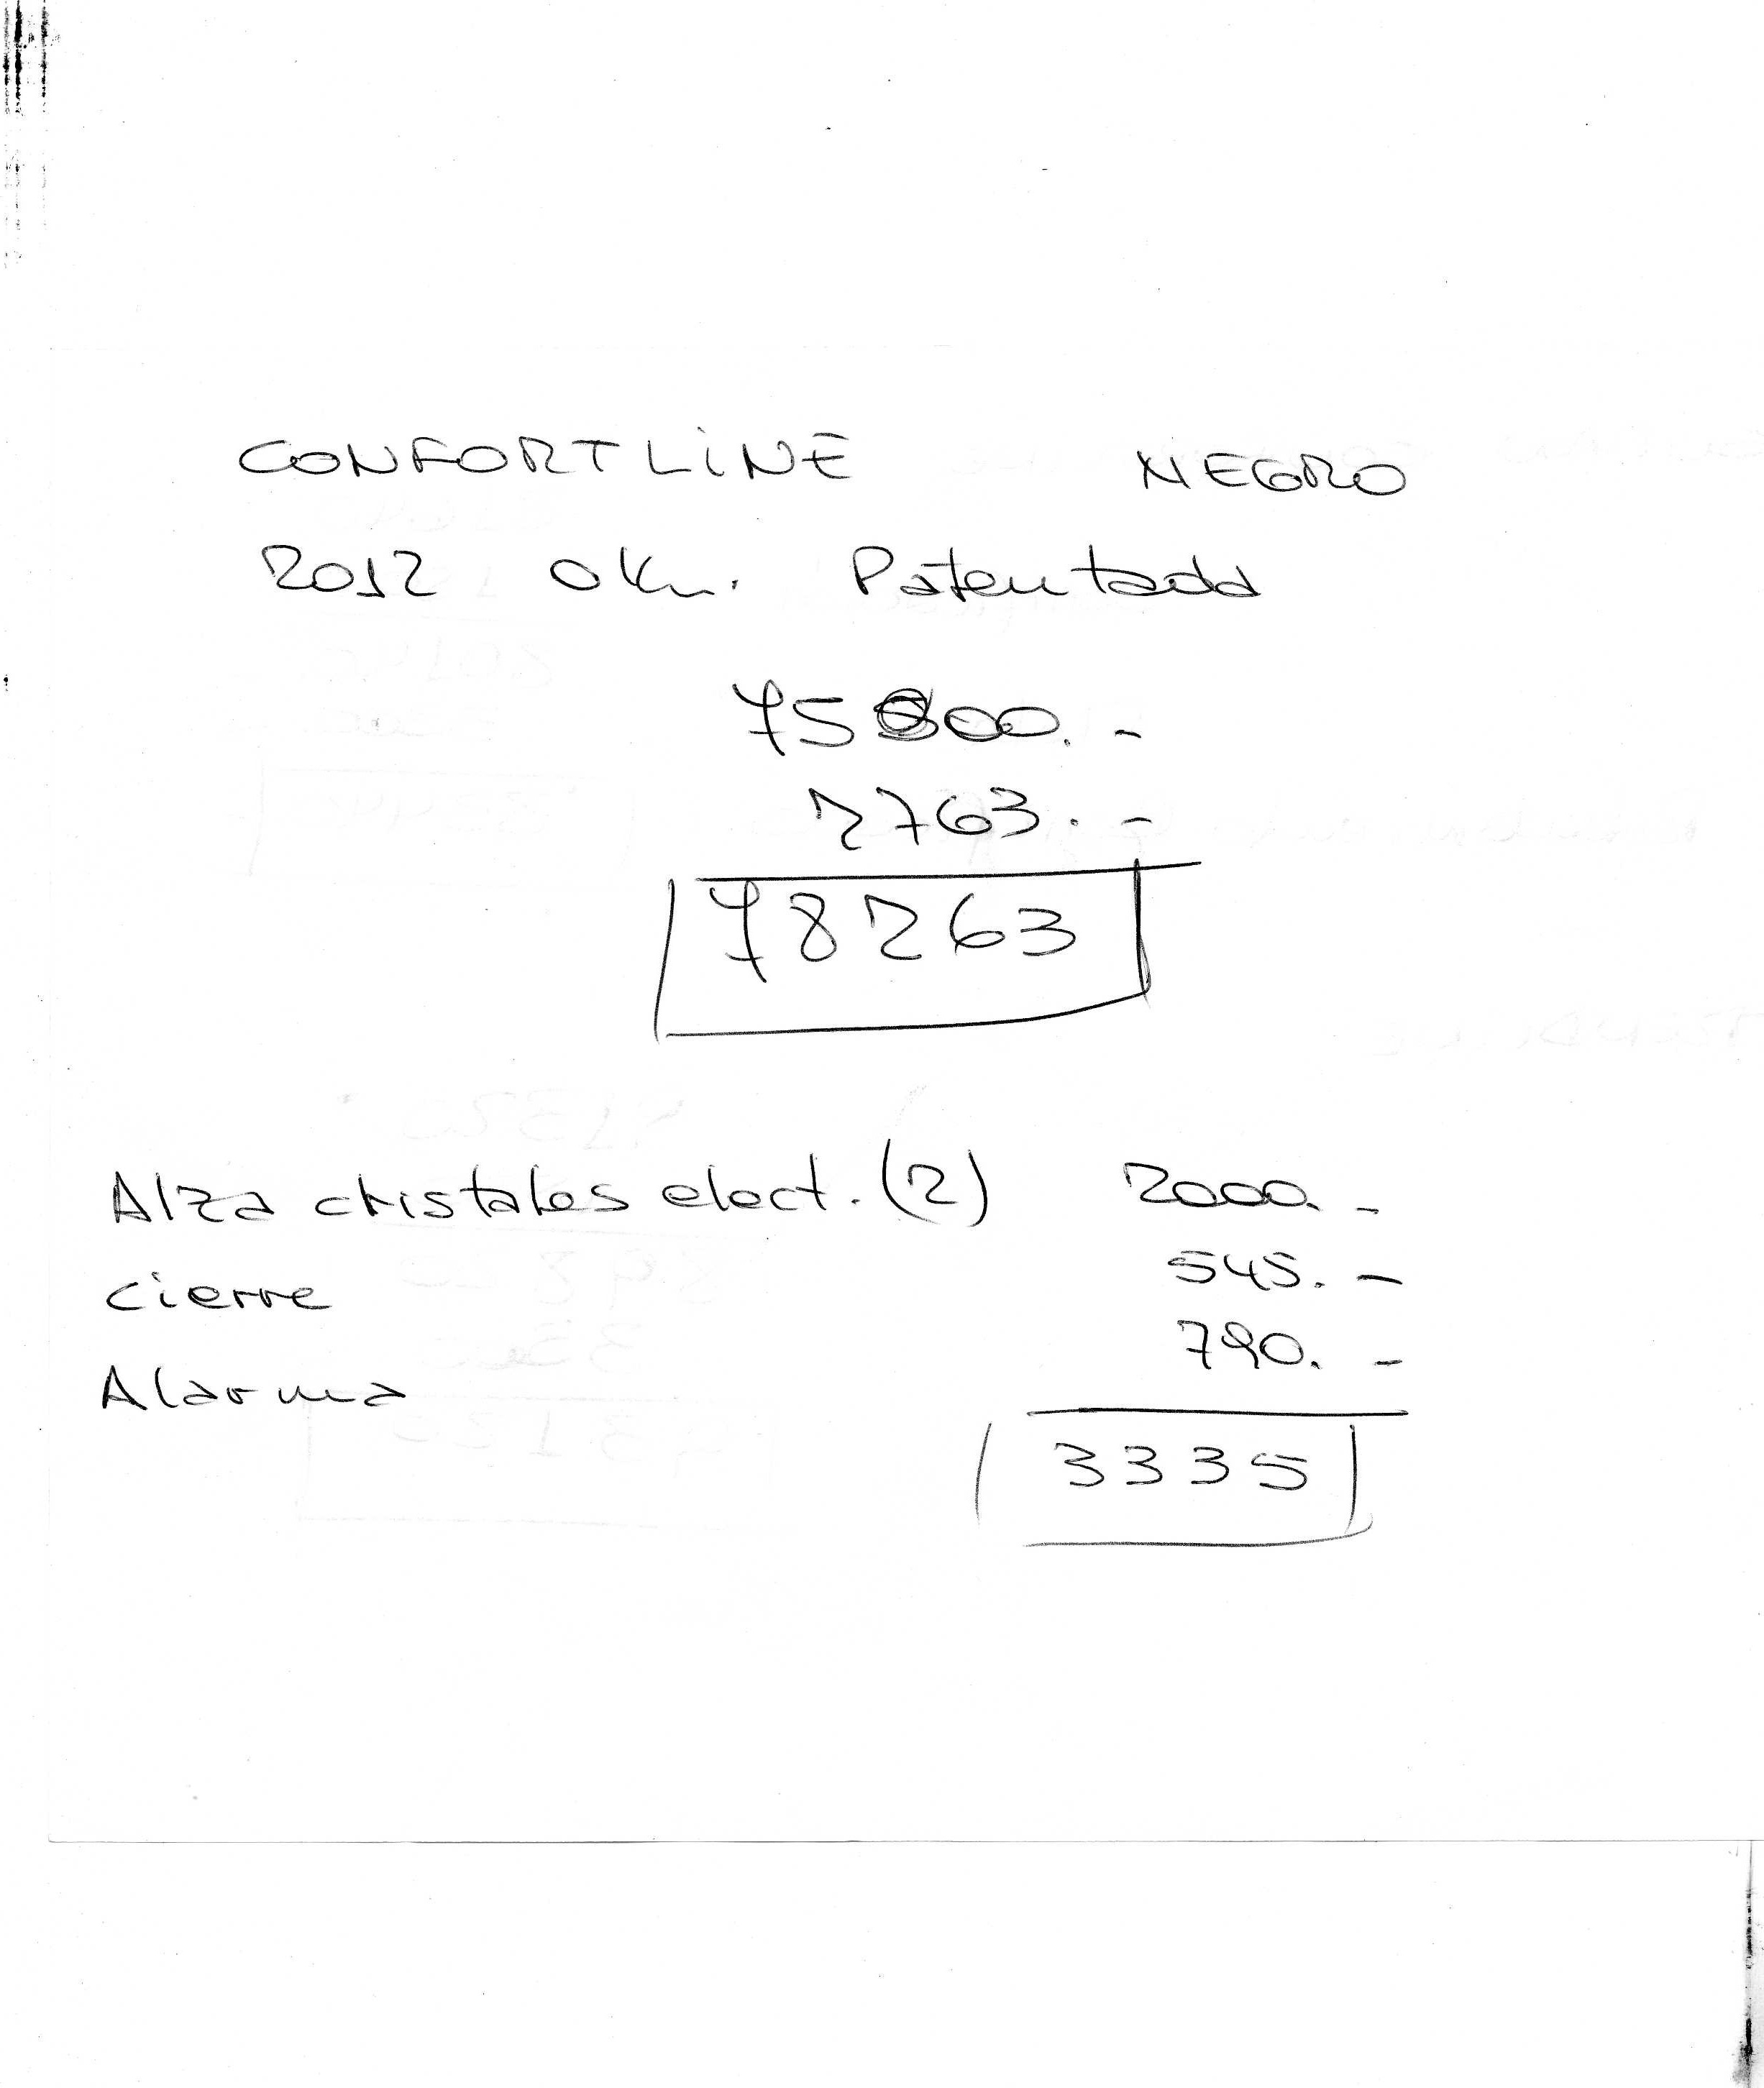 CONFORTLINE NEGRO
2012 0Km. Patentado
75500.-
2763.-
78263
Alza christales elect. (2) 2000.-
cierre 545.-
Alarma 790.-
3335